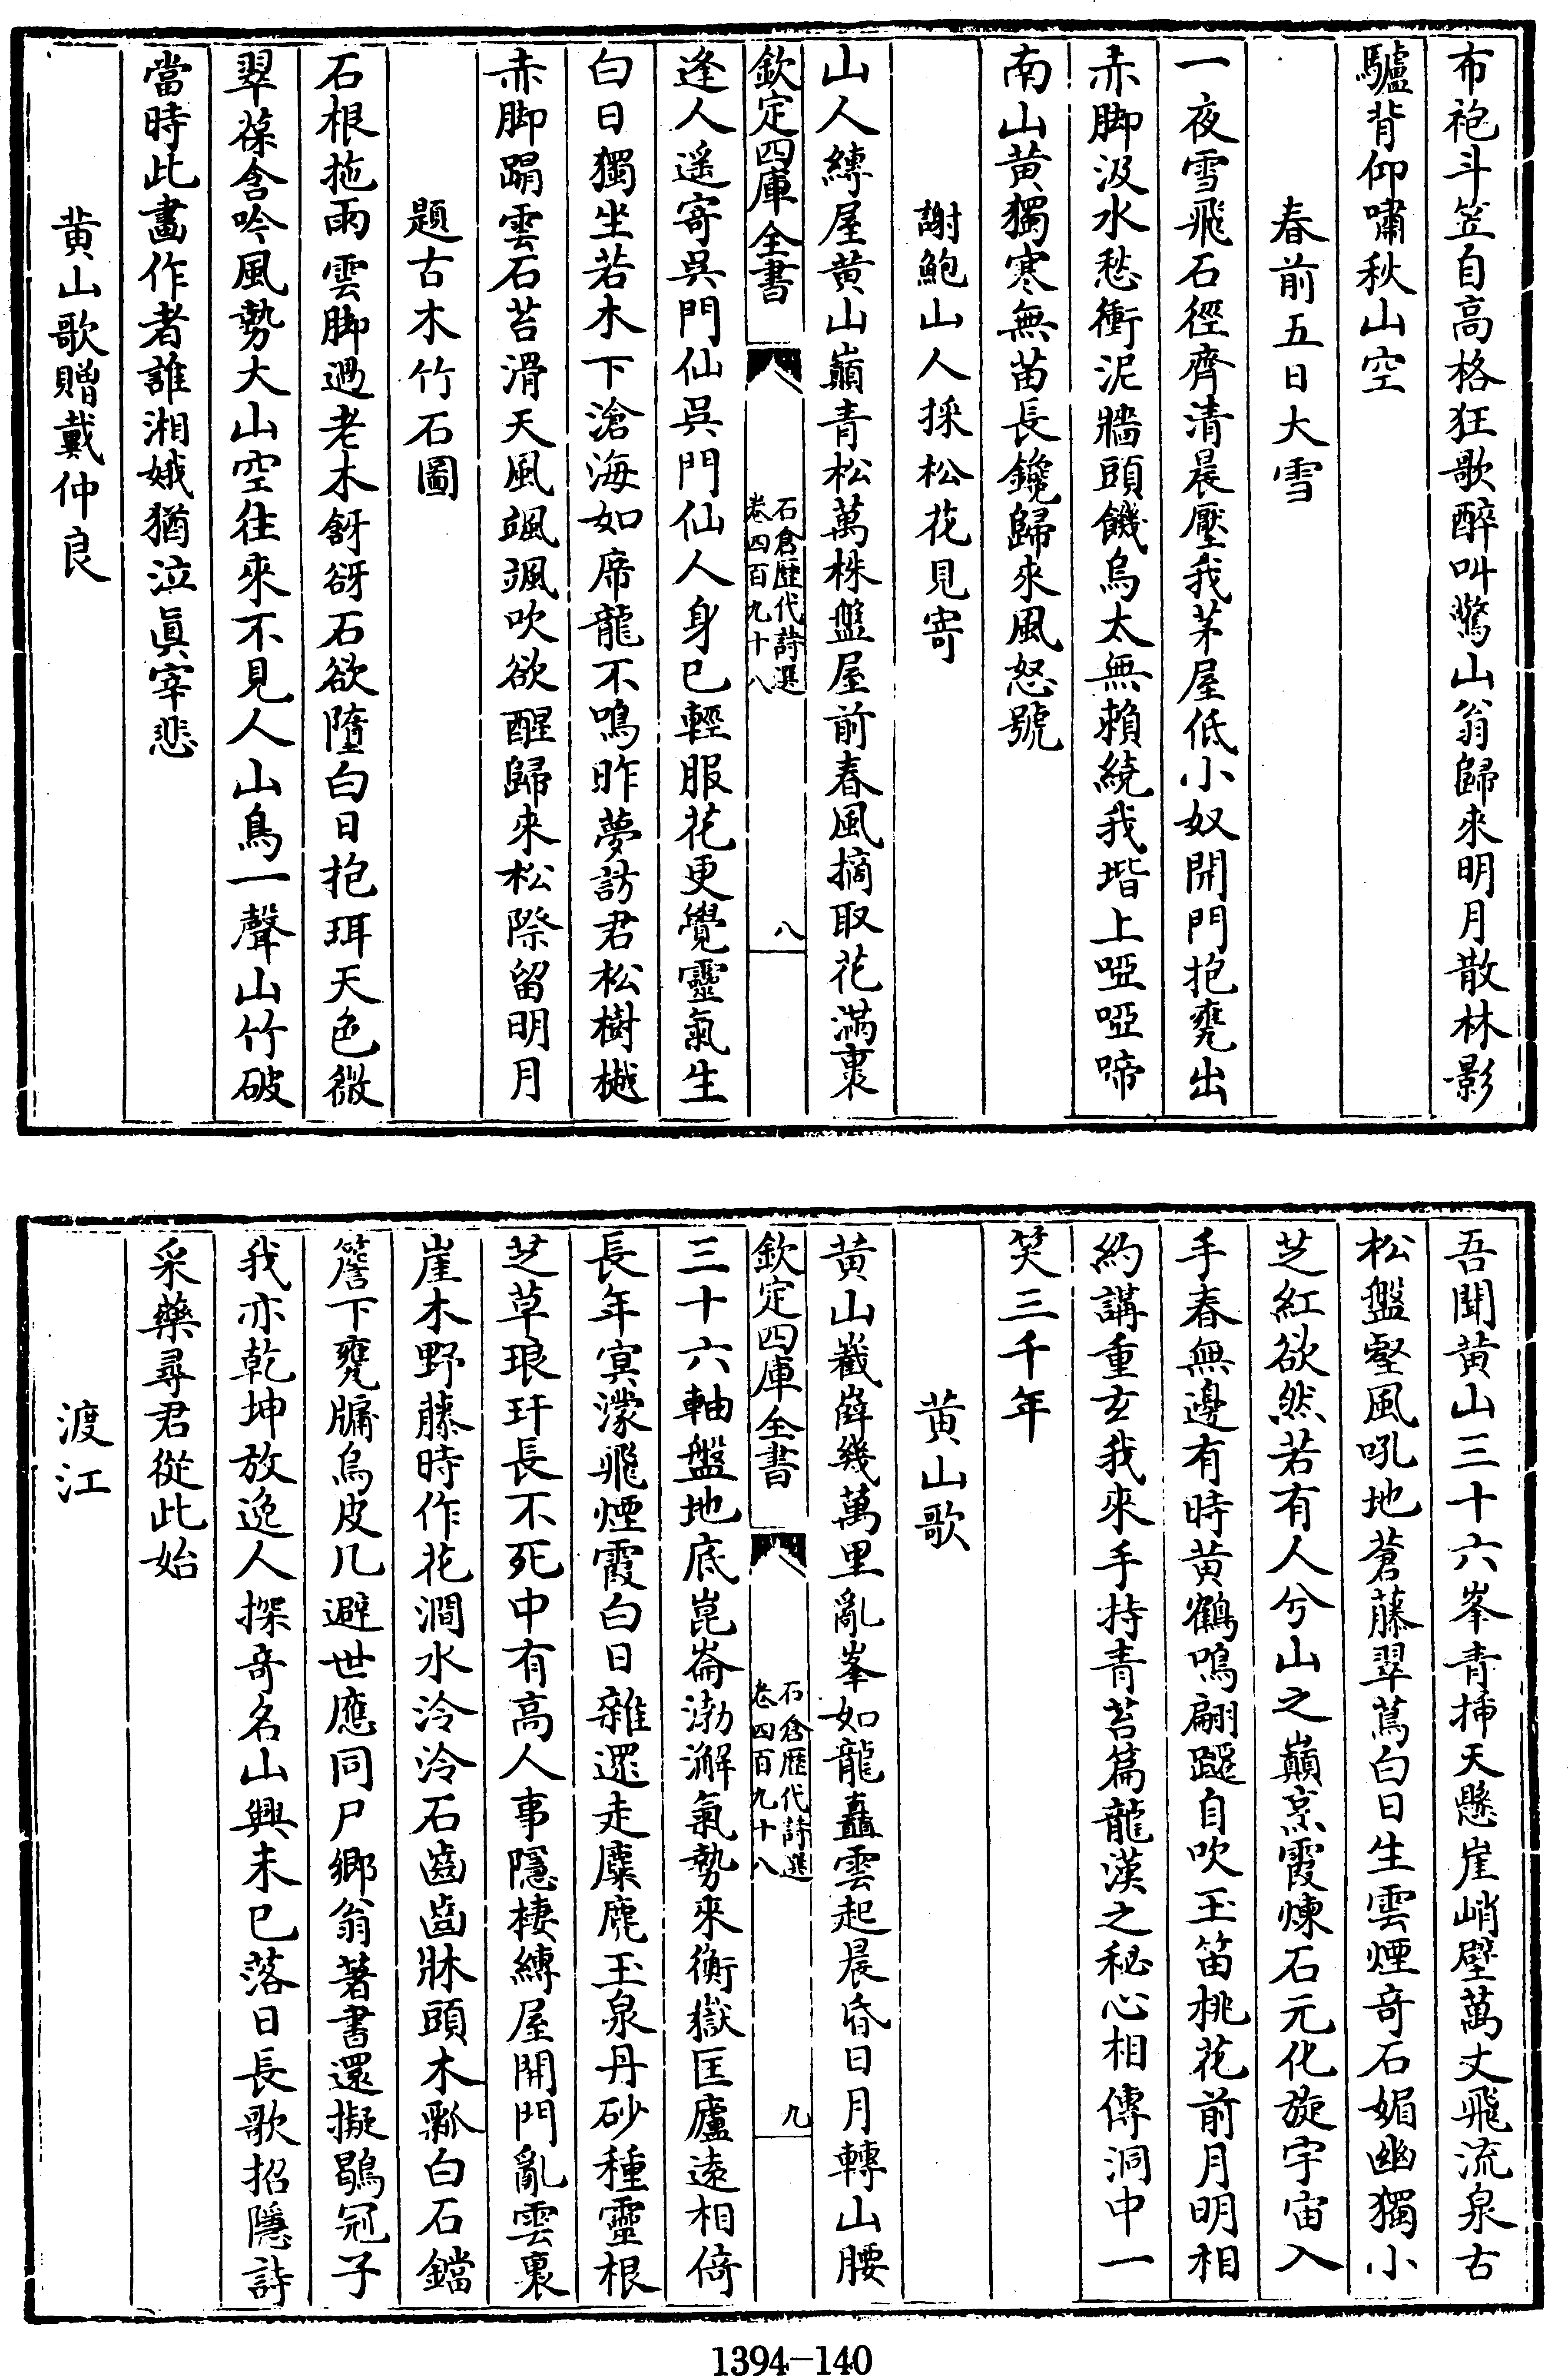 布袍斗笠自高格狂歌醉叫驚山翁歸來明月散林影
驢背仰嘯秋山空
春前五日大雪
一夜雪飛石徑齊清晨壓我茅屋低小奴開門抱甕出
赤脚汲水愁衝泥牆頭饑烏太無賴繞我堦上啞啞啼
南山黄獨寒無苗長鑱歸來風怒號
謝鮑山人採松花見寄
山人縛屋黄山巔青松萬株盤屋前春風摘取花滿裹
欽定四庫全書
石倉歷代詩選
卷四百九十八
八
逢人遥寄吳門仙吳門仙人身已輕服花更覺靈氣生
白日獨坐若木下滄海如席龍不鳴昨夢訪君松樹樾
赤脚蹋雲石苔滑天風颯颯吹欲醒歸來松際留明月
題古木竹石圖
石根拖雨雲脚過老木谺谺石欲墮白日抱珥天色微
翠葆含吟風勢大山空往來不見人山鳥一聲山竹破
當時此畫作者誰湘娥猶泣眞宰悲
黄山歌贈戴仲良
吾聞黄山三十六峯青揷天懸崖峭壁萬丈飛流泉古
松盤壑風吼地蒼藤翠蔦白日生雲煙奇石媚幽獨小
芝紅欲然若有人兮山之巔烹霞煉石元化旋宇宙入
手春無邊有時黄鶴鳴翩躚自吹玉笛桃花前月明相
約講重玄我來手持青苔篇龍漢之秘心相傳洞中一
笑三千年
黄山歌
黄山巀嶭幾萬里亂峯如龍矗雲起晨昏日月轉山腰
欽定四庫全書
石倉歷代詩選
卷四百九十八
九
三十六軸盤地底崑崙渤澥氣勢來衡嶽匡廬遠相倚
長年寞濛飛煙霞白日雜遝走麋麃玉泉丹砂種靈根
芝草琅玕長不死中有高人事隱棲縛屋開門亂雲裏
崖木野藤時作花澗水泠泠石齒齒牀頭木瓢白石鐺
簷下甕牖烏皮几避世應同尸鄉翁著書還擬鶡冠子
我亦乾坤放逸人探奇名山興未已落日長歌招隱詩
采藥尋君從此始
渡江
1394-140